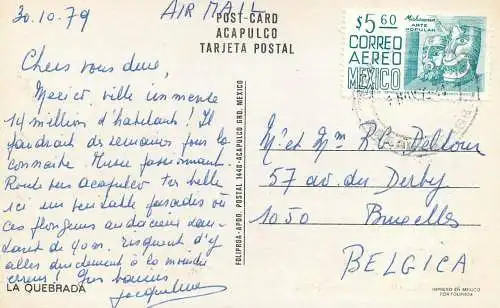 30.10.79
AIR MAIL
POST-CARD
ACAPULCO
TARJETA POSTAL
Chers vous deux,
Mexico ville immense
14 million d'habitants! Il
faudrait des semaines pour la
connaitre. Musée passionnant.
Route sur Acapulco très belle
ici un véritable paradis où
ces plongeurs audacieux
de 40 m. risquent d'y
aller durement à la moindre
erreur! Gros baisers
Jacqueline
LA QUEBRADA
FOLIPROSA-APDO. POSTAL 1440-ACAPULCO GRO. MEXICO
$5.60
Michoacan
ARTE
POPULAR
CORREO
AEREO
MEXICO
M et Mm R.C. Deltour
57 av. du Derby
1050 Bruxelles
BELGICA
IMPRESO EN MEXICO
POR FOLIPROSA